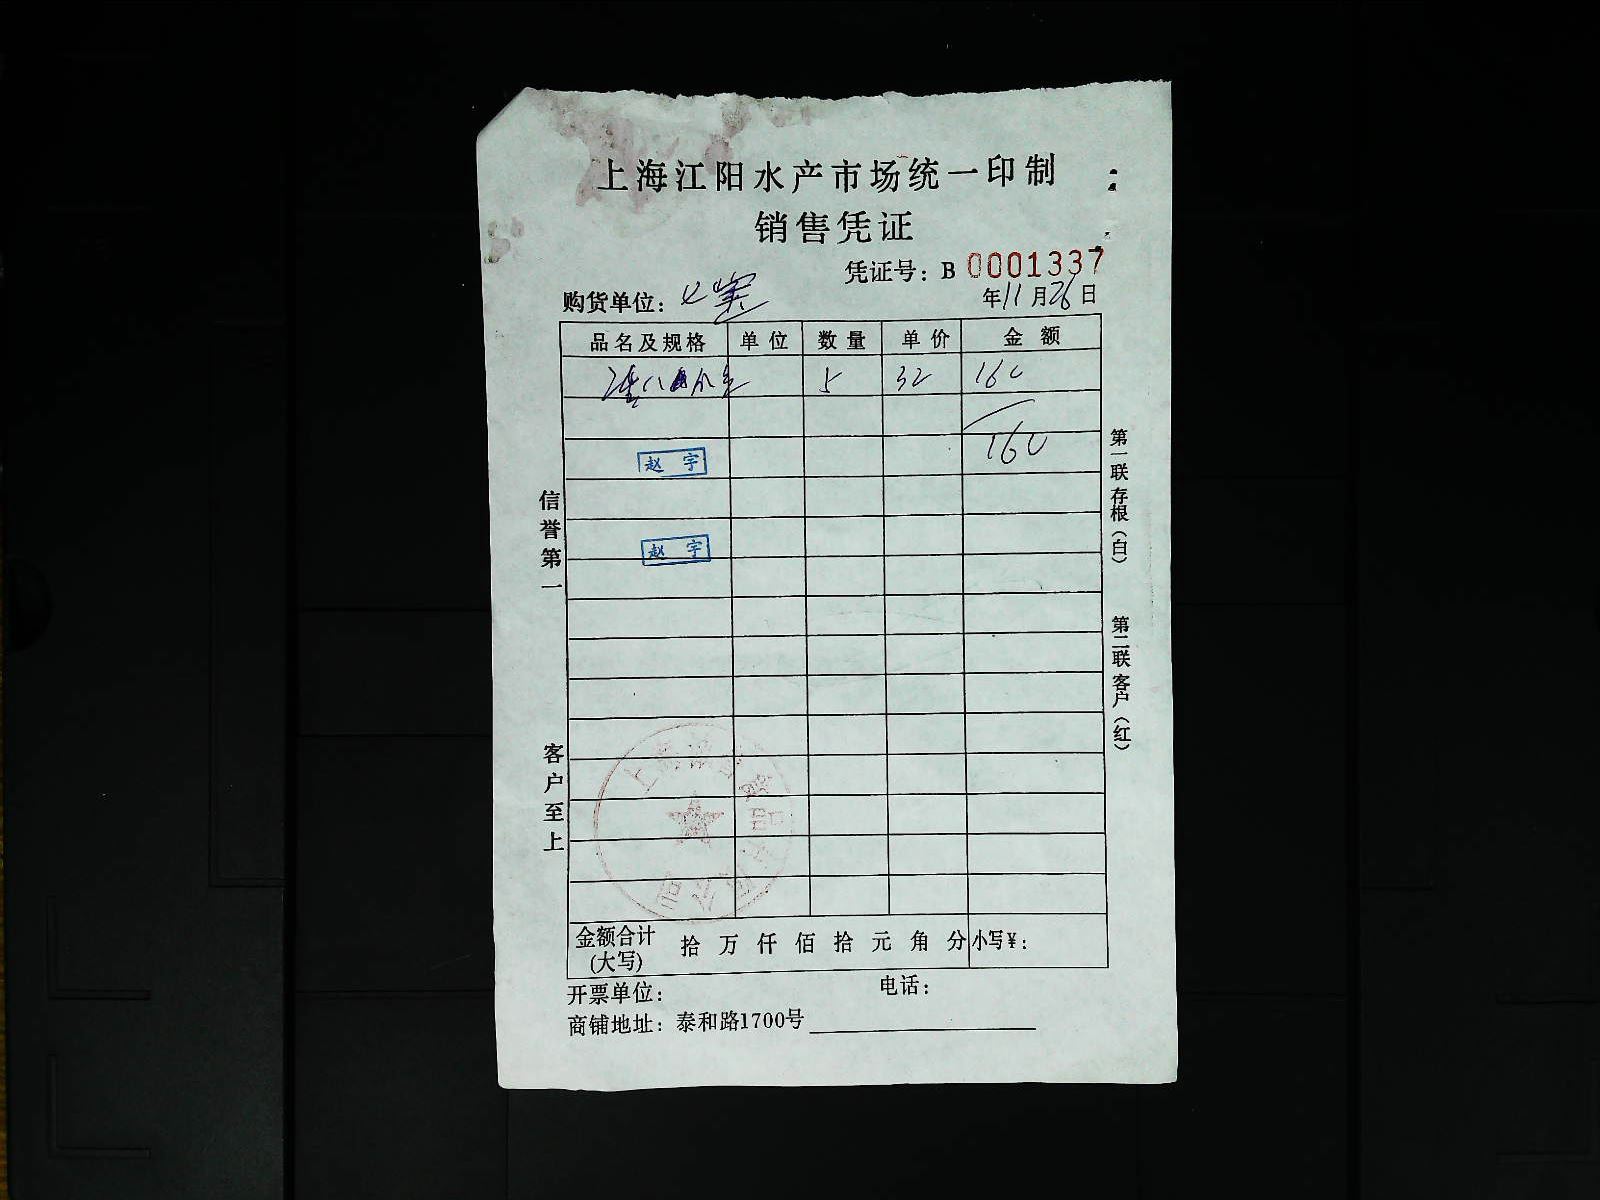 上海江阳水产市场统一印制
销售凭证
凭证号：B 0001337
购货单位：
年11月26日
品名及规格 单位 数量 单价 金额
5 32 160
160
赵宇
赵宇
信誉第一
客户至上
第一联存根（白）
第二联客户（红）
金额合计（大写） 拾 万 仟 佰 拾 元 角 分 小写￥：
开票单位： 电话：
商铺地址：泰和路1700号